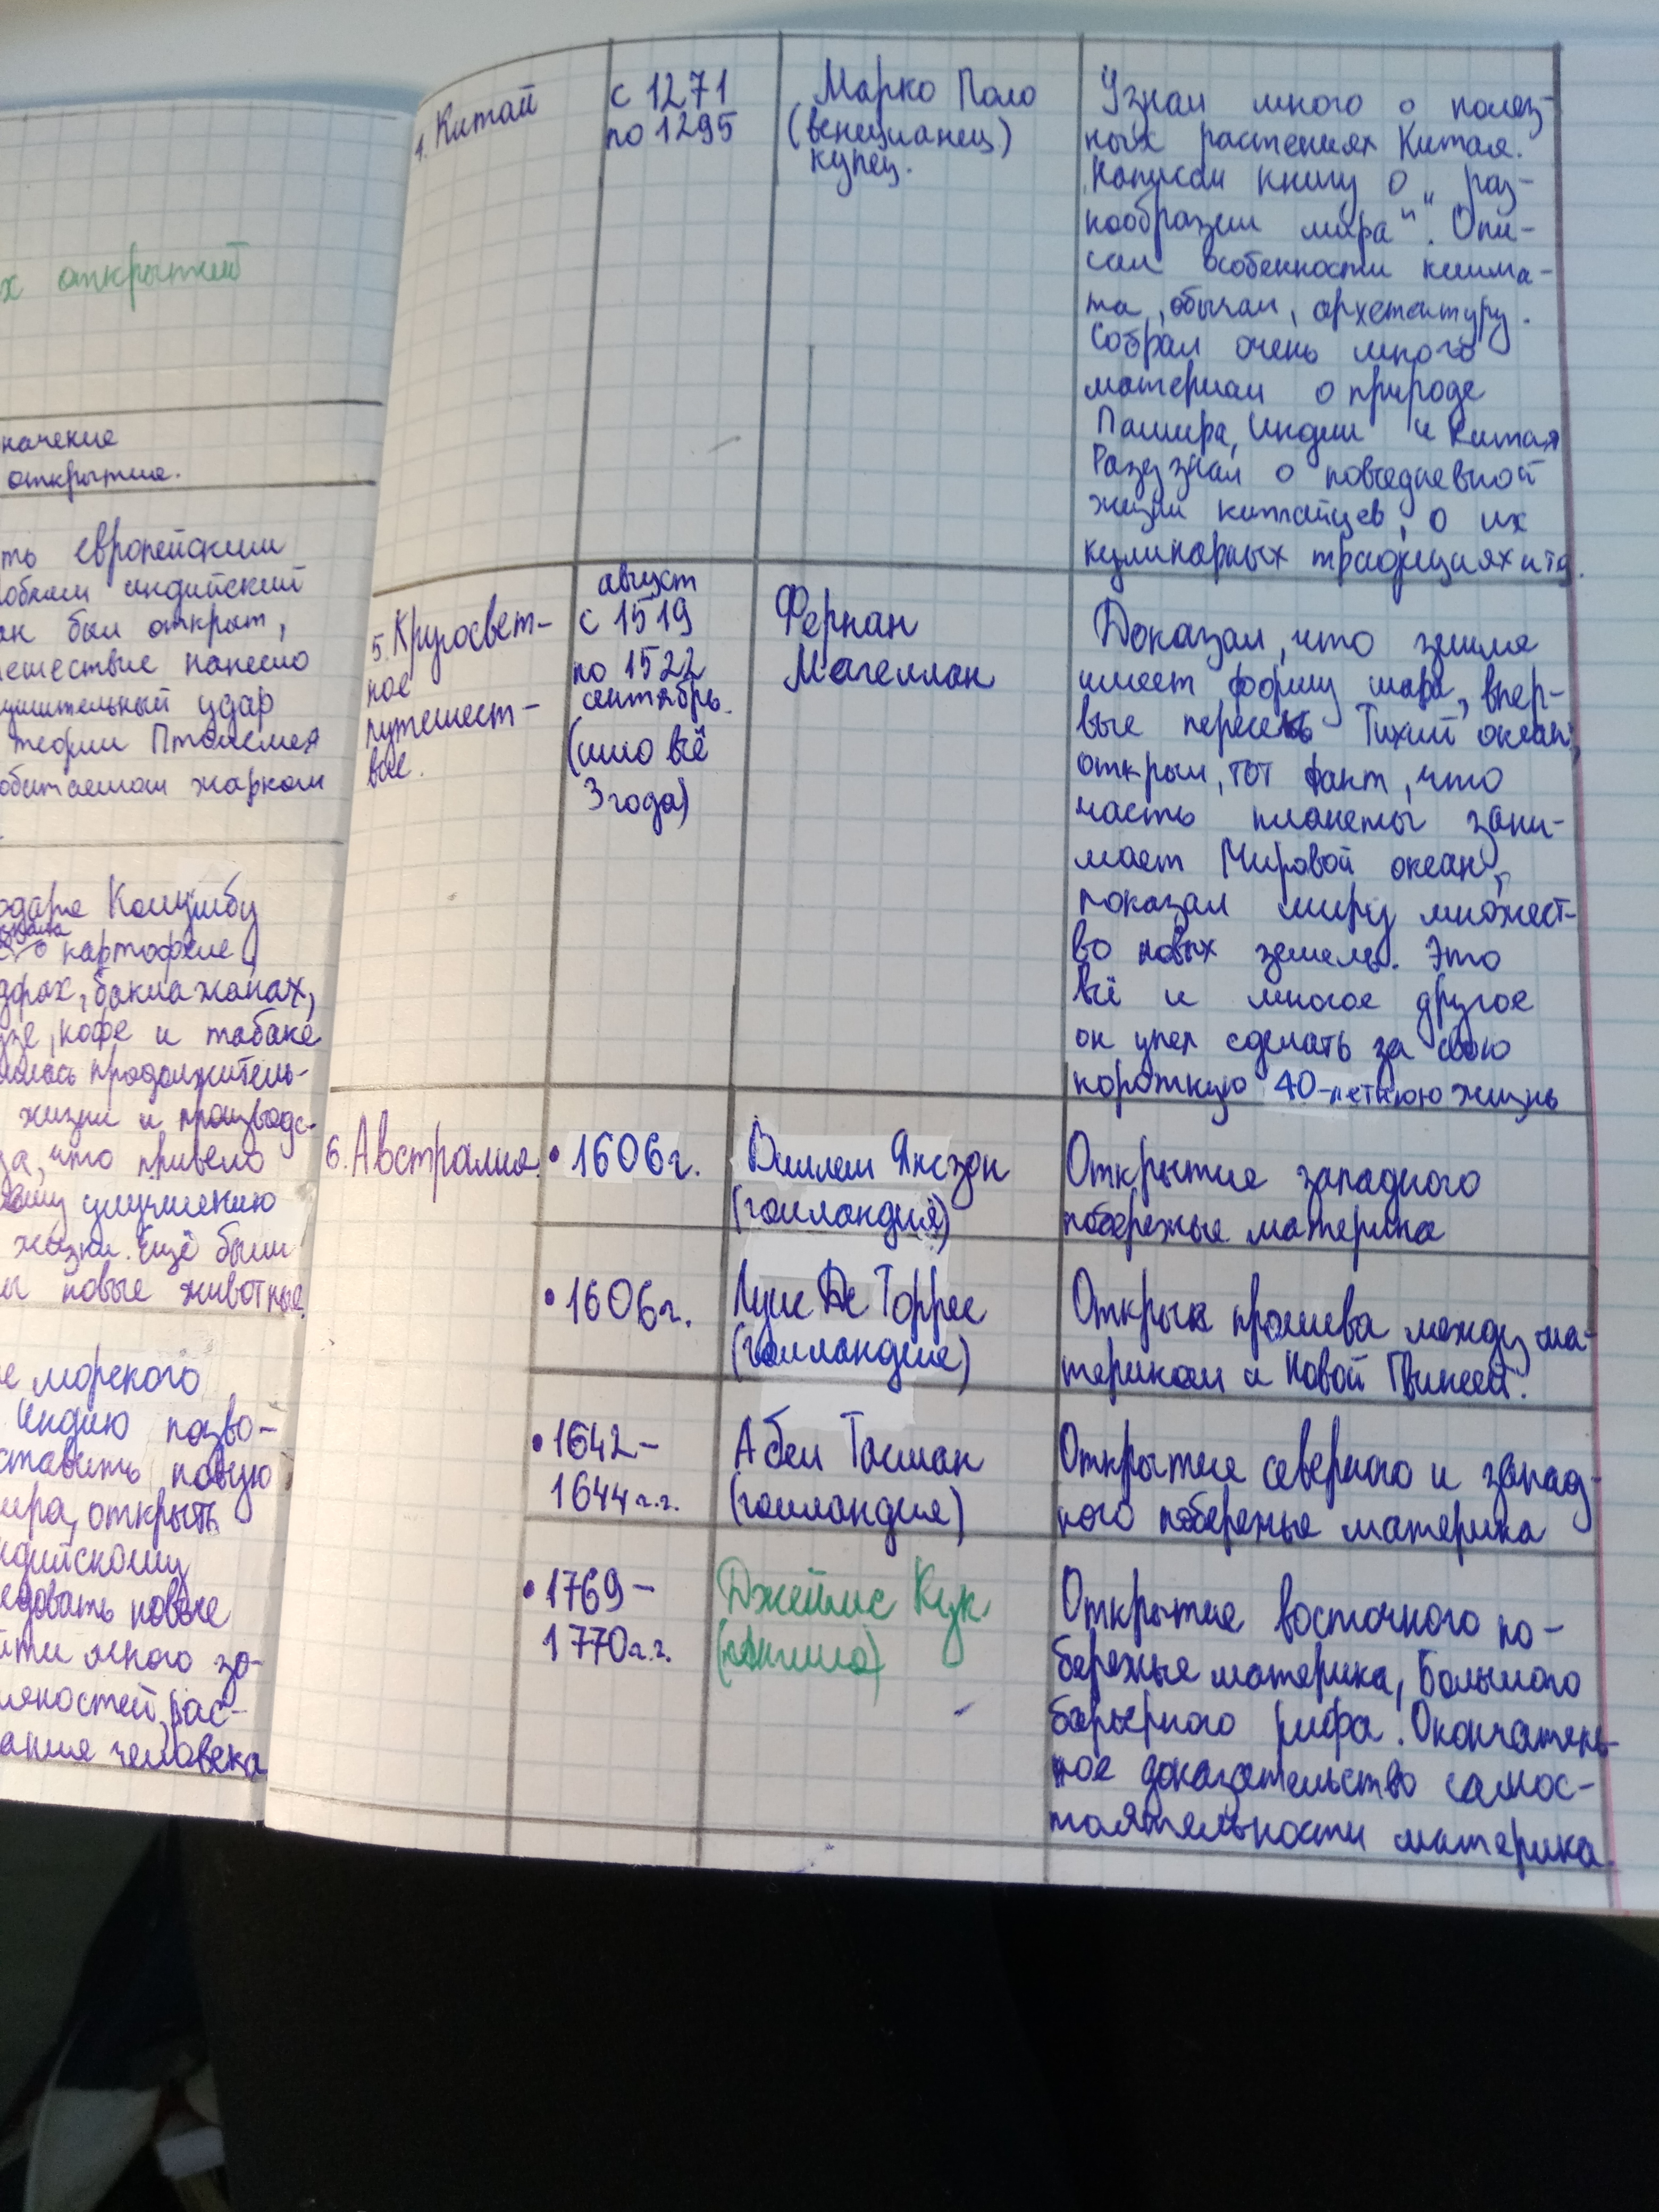 х открытий
начение
открытие.
ть европейским
индийский
ак был открыт,
ешествие нанесло
удар
теории Птолемея
обитаемом жарком
Колумбу
о картофеле,
баклажанах,
кофе и табаке
продолжитель-
жизни и производс-
что привело
улучшению
жизни. Ещё были
новые животные.
е морского
Индию позво-
ставить новую
мира, открыть
ндийскому
едовать новые
йти много зо-
рас-
ания человека
4. Китай
с 1271
по 1295
Марко Поло
(венецианец)
купец.
Узнал много о полез-
ных растениях Китая.
Написал книгу о „раз-
нообразии мира“. Опи-
сал особенности клима-
та, обычаи, архетектуру.
Собрал очень много
материал о природе
Памира, Индии и Китая
Разузнал о повседневной
жизни китайцев, о их
кулинарных традициях и тд.
5. Кругосвет-
ное
путешест-
вие.
август
с 1519
по 1522
сентябрь.
(шло всё
3 года)
Фернан
Магеллан
Доказал, что земля
имеет форму шара, впер-
вые пересёк Тихий океан,
открыл, тот факт, что
часть планеты зани-
мает Мировой океан,
показал миру множест-
во новых земель. Это
всё и многое другое
он успел сделать за свою
короткую 40-летнюю жизнь
6. Австралия.
• 1606г.
Виллем Янсзон
(голландия)
Открытие западного
побережье материка
• 1606г.
Луис Де Торрес
(голландия)
Открыл пролива между ма-
териком и Новой Гвинеей.
• 1642-
1644г.г.
Абел Тасман
(голландия)
Открытие северного и запад-
ного побережье материка
• 1769-
1770г.г.
Джеймс Кук
(англия)
Открытие восточного по-
бережье материка, Большого
барьерного рифа. Окончатель-
ное доказательство самос-
тоятельности материка.